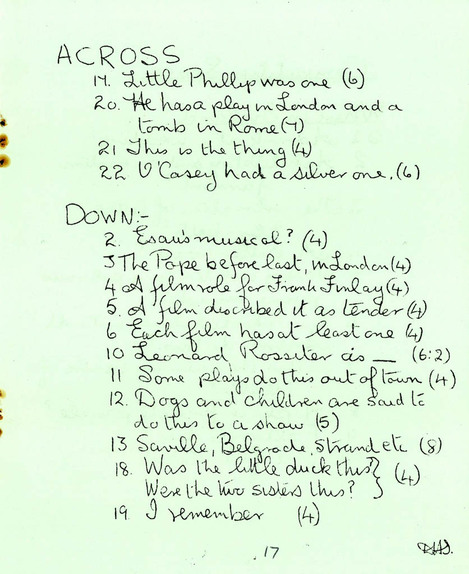 ACROSS
17. Little Phillip was one (6)
20. He has a play in London and a
tomb in Rome (7)
21 This is the thing (4)
22 O'Casey had a silver one. (6)
DOWN:-
2. Esau's musical? (4)
3 The Pope before last, in London (4)
4 A film role for Frank Finlay (4)
5. A film described it as tender (4)
6 Each film has at least one (4)
10 Leonard Rossiter as __ (6:2)
11 Some plays do this out of town (4)
12. Dogs and children are said to
do this to a show (5)
13 Saville, Belgrade, Strand etc (8)
18. Was the little duck this? } (4)
Were the two sisters this?
19. I remember (4)
17